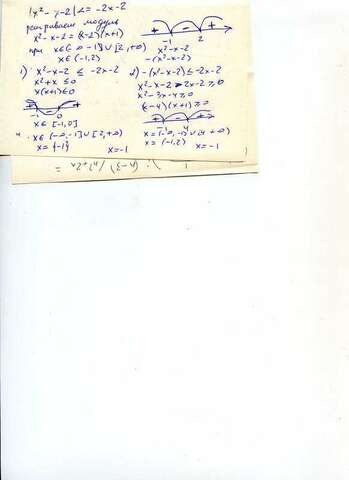 |x² - x - 2| ≤ -2x - 2
раскрываем модуль
x² - x - 2 = (x-2)(x+1)
+ - +
-1 2
при x∈(-∞ -1]∪[2,+∞) x² - x - 2
x∈(-1,2) -(x² - x - 2)
1) x² - x - 2 ≤ -2x - 2
x² + x ≤ 0
x(x+1) ≤ 0
+ - +
-1 0
x∈[-1,0]
x∈(-∞,-1]∪[2,+∞)
x={-1} x=-1
2) -(x² - x - 2) ≤ -2x - 2
x² - x - 2 - 2x - 2 ≥ 0
x² - 3x - 4 ≥ 0
(x-4)(x+1) ≥ 0
+ - +
x=(-∞,-1]∪[4 +∞)
x=(-1,2) x=-1